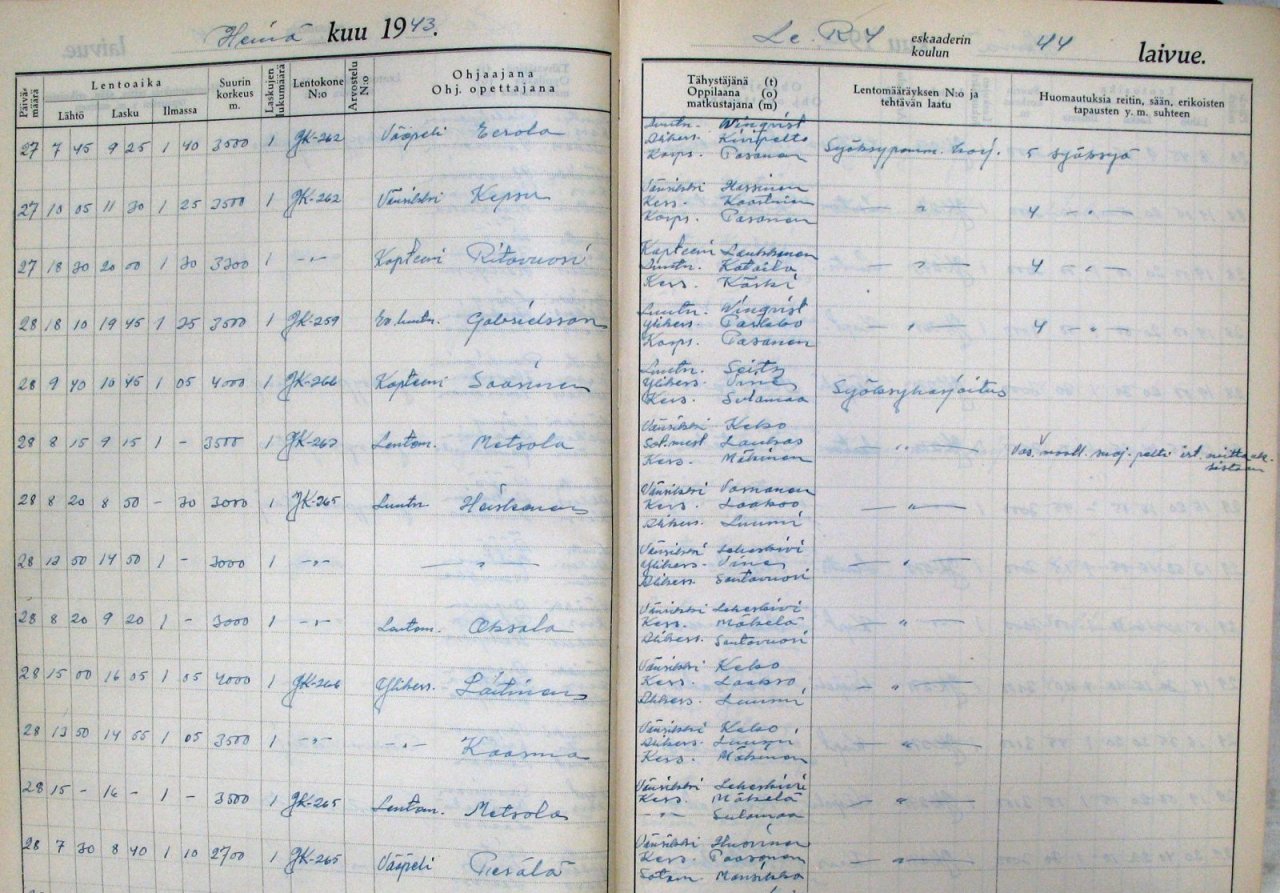 Heinä kuu 1943.
Le.R 4 eskaaderin
koulun
44 laivue.
Päivä-
määrä
Lentoaika
Lähtö Lasku Ilmassa
Suurin
korkeus
m.
Laskujen
lukumäärä
Lentokone
N:o
Arvostelu
N:o
Ohjaajana
Ohj. opettajana
Tähystäjänä (t)
Oppilaana (o)
matkustajana (m)
Lentomääräyksen N:o ja
tehtävän laatu
Huomautuksia reitin, sään, erikoisten
tapausten y. m. suhteen
27 7 45 9 25 1 40 3500 1 JK-262 Vääpeli Eerola
Luutn. Winqvist
Alikers. Kivipelto
Korps. Pasanen
5 syöksyä
27 10 05 11 30 1 25 3500 1 JK-262 Vänrikki Kepsu
Vänrikki Hassinen
Kers.
Korps. Pasanen
4 - " -
27 18 30 20 00 1 30 3300 1 - " - Kapteeni Ritavuori
Kapteeni Laukkanen
Luutn. Kataila
Kers. Käski
- " - 4 "
28 18 10 19 45 1 25 3500 1 JK-259 Ev.luutn. Gabrielsson
Luutn. Winqvist
Ylikers.
Korps. Pasanen
" 4 - " -
28 9 40 10 45 1 05 4000 1 JK-266 Kapteeni Saarinen
Luutn. Seitz
Ylikers. Vine
Kers. Sulamaa
Syöksyharjoitus
28 8 15 9 15 1 - 3500 1 Lentom. Metsola
Vänrikki Kelso
Sot.mest. Laukas
Kers. Mäkinen
- " -
28 8 20 8 50 - 30 3000 1 JK-265 Luutn. Heiskanen
Vänrikki
Kers. Laakso
Alikers. Luumi
- " -
28 13 50 14 50 1 - 3000 1 - " - - " -
Vänrikki Leheskivi
Ylikers. Vine
Alikers. Santavuori
- " -
28 8 20 9 20 1 - 3000 1 - " - Lentom. Oksala
Vänrikki Leheskivi
Kers. Mäkelä
Alikers. Santavuori
- " -
28 15 00 16 05 1 05 4000 1 JK-266 Ylikers. Laitinen
Vänrikki Kelso
Kers. Laakso
Alikers. Luumi
- " -
28 13 50 14 55 1 05 3500 1 - " - - " - Kaarma
Vänrikki Kelso
Alikers. Luumi
Kers. Mäkinen
- " -
28 15 - 16 - 1 - 3500 1 JK-265 Lentom. Metsola
Vänrikki Leheskivi
Kers. Mäkelä
- " - Sulamaa
- " -
28 7 30 8 40 1 10 2700 1 JK-265 Vääpeli Pesälä
Vänrikki Huovinen
Kers. Paasonen
Sotam. Mansikka
- " -